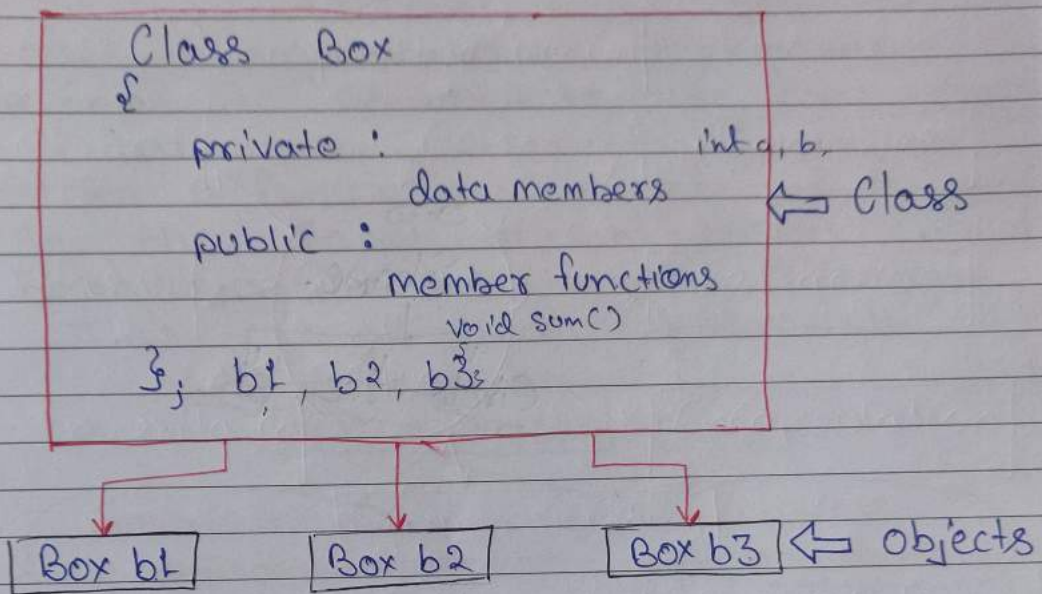 Class Box
{
private :
int a, b,
data members
<= Class
public :
member functions
void sum()
}; b1, b2, b3;
Box b1
Box b2
Box b3
<= objects